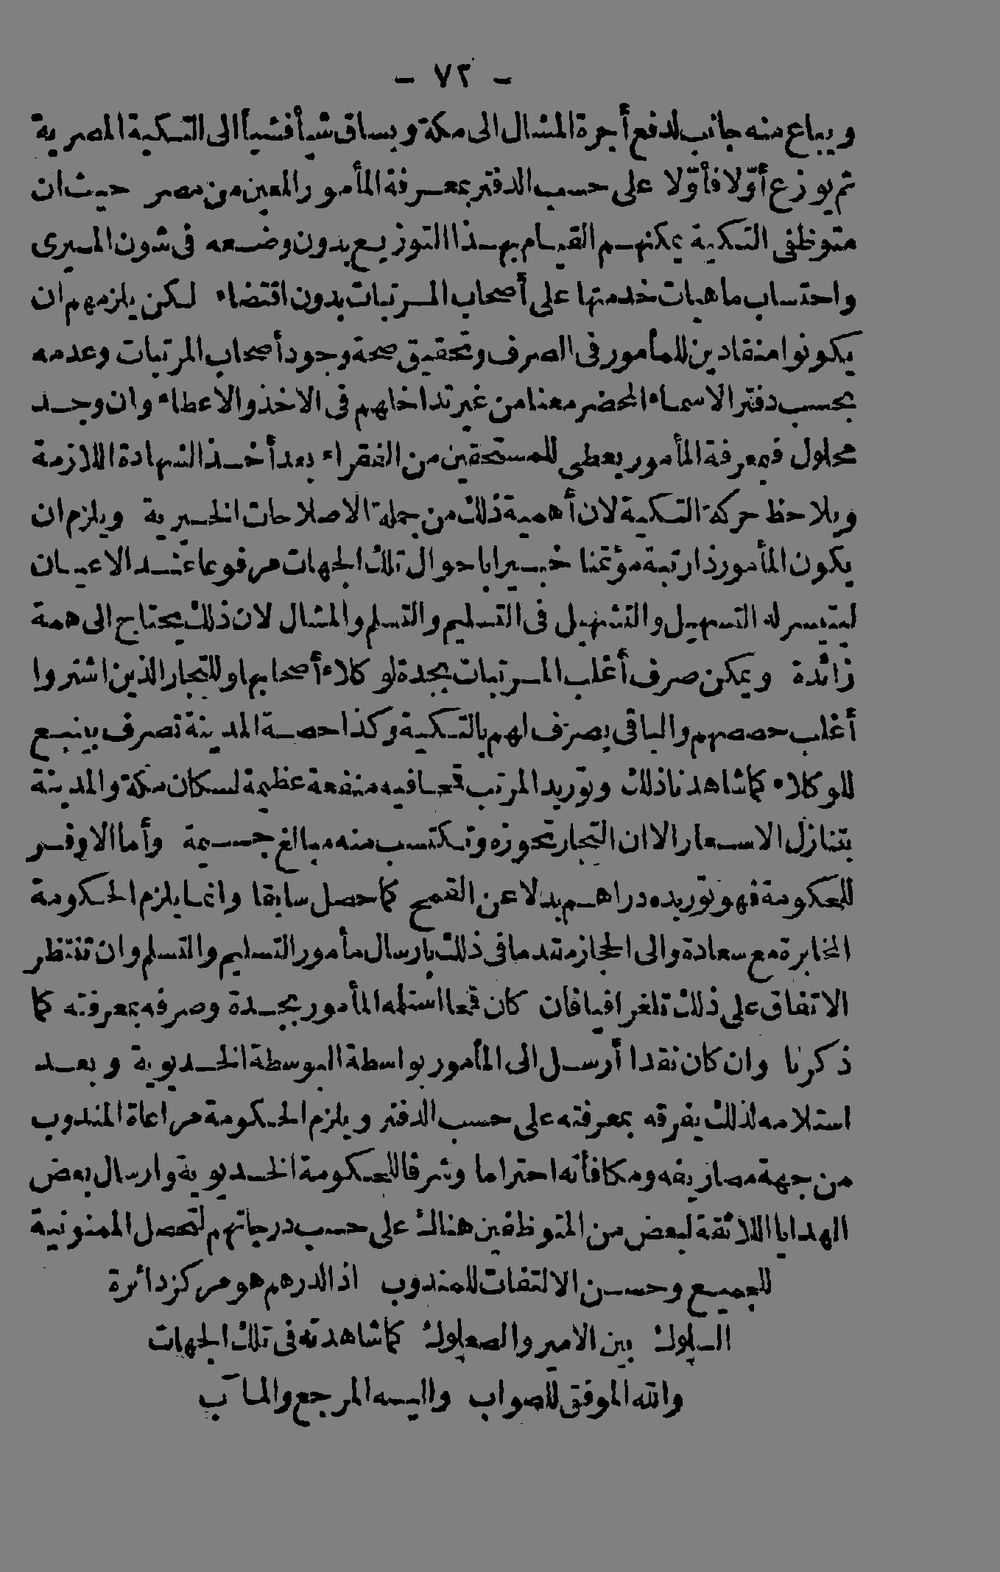 - ٧٢ -
ويباع منه جانب لدفع أجرة المشال الى مكة ويساق شيأ فشيأ الى التكية المصرية
ثم يوزع أوّلا فأوّلا على حسب الدفتر بمعرفة المأمور المعين من مصر حيث ان
متوظفى التكية يمكنهم القيام بهذا التوزيع بدون وضعه فى شون الميرى
واحتساب ماهيات خدمتها على أصحاب المرتبات بدون اقتضاء لكن يلزمهم ان
يكونوا منقادين للمأمور فى الصرف وتحقيق صحة وجود أصحاب المرتبات وعدمه
بحسب دفتر الاسماء المحضر معنا من غير تداخلهم فى الاخذ والاعطاء وان وجد
محلول فبمعرفة المأمور يعطى للمستحقين من الفقراء بعد أخذ الشهادة اللازمة
ويلاحظ حركة التكية لان أهمية ذلك من جملة الاصلاحات الخيرية ويلزم ان
يكون المأمور ذا رتبة مؤتمنا خبيرا باحوال تلك الجهات مرفوعا عند الاعيان
ليتيسر له التسهيل والتشهيل فى التسليم والتسلم والمشال لان ذلك يحتاج الى همة
زائدة ويمكن صرف أغلب المرتبات بجدة لوكلاء أصحابها وللتجار الذين اشتروا
أغلب حصصهم والباقى يصرف لهم بالتكية وكذا حصة المدينة تصرف بينبع
للوكلاء كما شاهدنا ذلك وتوريد المرتب قمحا فيه منفعة عظيمة لسكان مكة والمدينة
بتنازل الاسعار الا ان التجار تحوزه وتكتسب منه مبالغ جسيمة وأما الاوفر
للحكومة فهو توريده دراهم بدلا عن القمح كما حصل سابقا وانما يلزم الحكومة
المخابرة مع سعادة والى الحجاز مقدما فى ذلك بارسال مأمور التسليم والتسلم وان تنتظر
الاتفاق على ذلك تلغرافيا فان كان قمحا استلمه المأمور بجدة وصرفه بمعرفته كما
ذكرنا وان كان نقدا أرسل الى المأمور بواسطة البوسطة الخديوية وبعد
استلامه لذلك يفرقه بمعرفته على حسب الدفتر ويلزم الحكومة مراعاة المندوب
من جهة مصاريفه ومكافأته احتراما وشرفا للحكومة الخديوية وارسال بعض
الهدايا اللائقة لبعض من المتوظفين هناك على حسب درجاتهم لتحصل الممنونية
للجميع وحسن الالتفات للمندوب اذ الدرهم هو مركز دائرة
السلوك بين الامير والصعلوك كما شاهدته فى تلك الجهات
والله الموفق للصواب واليه المرجع والمآب